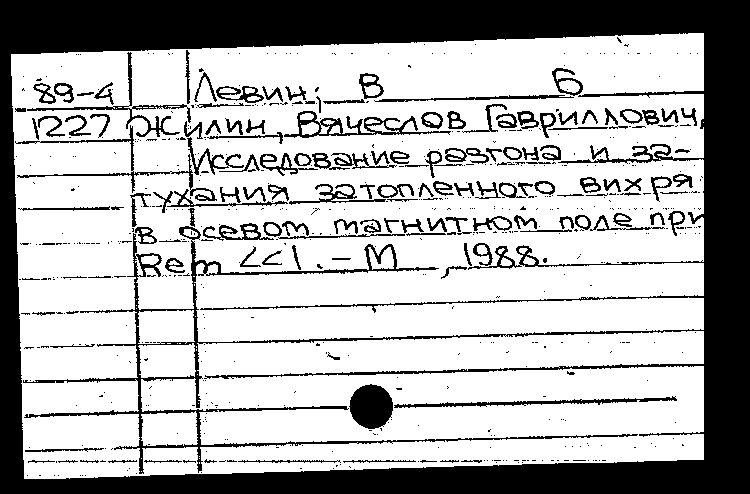 89-4 Левин, В Б
1227 Жилин, Вячеслов Гавриллович,
Исследование разгона и за-
тухания затопленного вихря
в осевом магнитном поле при
Rem <<1. - М , 1988.